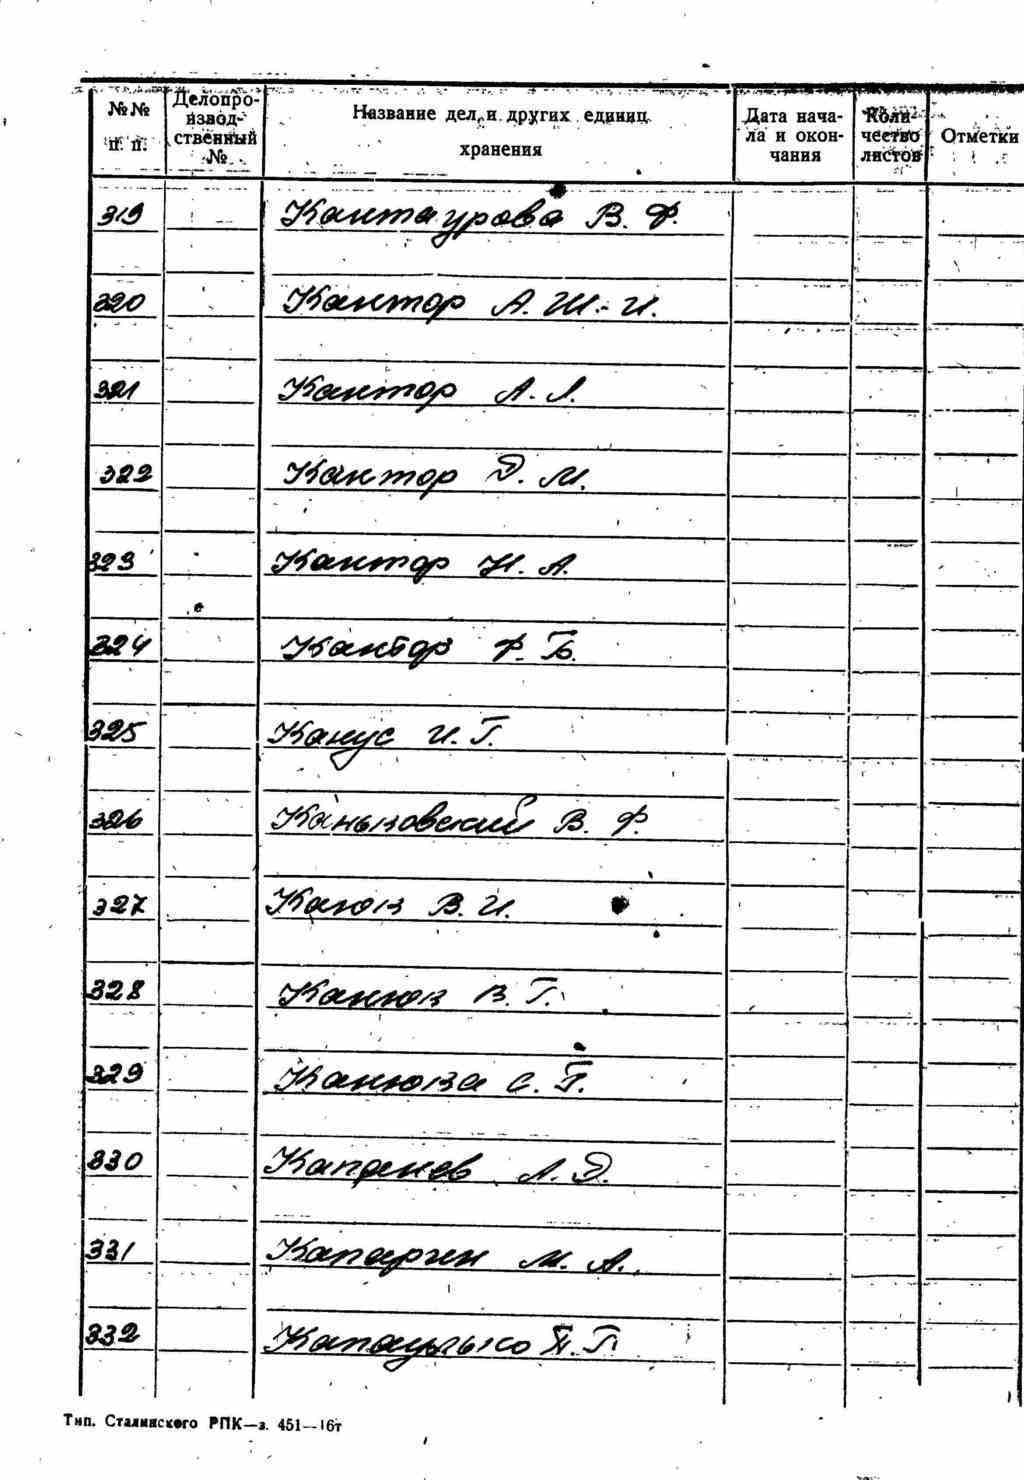 №№ п. п. Делопроизводственный № Название дел и других единиц хранения Дата начала и окончания Количество листов Отметки
319 Кантаурова В. Ф.
320 Кантор А. Ш.-И.
321 Кантор А. Л.
322 Кантор Д. М.
323 Кантор Н. А.
324 Кантор Ф. Б.
325 Канус И. Г.
326 Каньковский В. Ф.
327 Канюк В. И.
328 Канюк В. Г.
329 Канюка С. П.
330 Капанев А. Д.
331 Капарин М. А.
332 П. Г.
Тип. Сталинского РПК—з. 451—16т